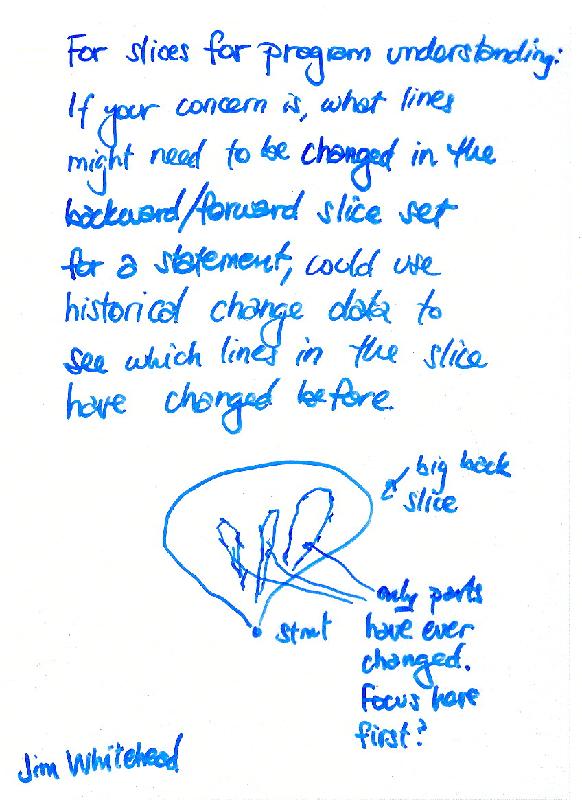 For slices for program understanding:
If your concern is, what lines
might need to be changed in the
backward/forward slice set
for a statement, could use
historical change data to
see which lines in the slice
have changed before.
big back
slice
only parts
have ever
changed.
Focus here
first?
stmt
Jim Whitehead